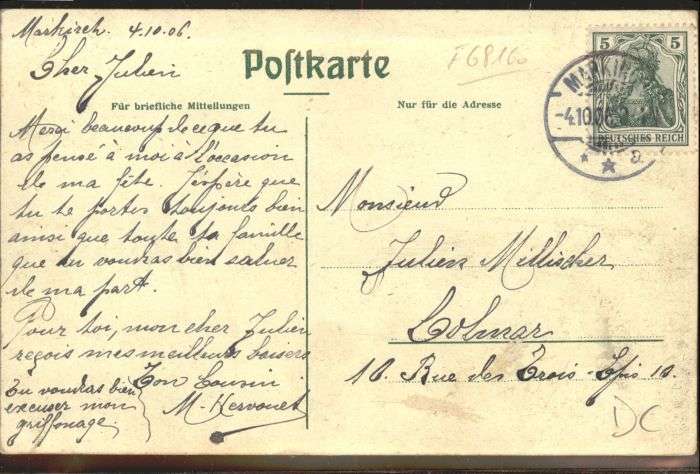 Markirch 4.10.06.
Cher Julien
Postkarte
F68160
Für briefliche Mitteilungen
Nur für die Adresse
Merci beaucoup de ce que tu
as pensé à moi à l'occasion
de ma fête. J'espère que
tu te portes toujours bien
ainsi que toute ta famille
que tu voudras bien saluer
de ma part.
Pour toi, mon cher Julien
reçois mes meilleurs baisers
Ton Cousin
M. Kervouet
Tu voudras bien
excuser mon
griffonage.
5 5
DEUTSCHES REICH
MARKIRCH
-4.10.06
a
Monsieur
Julien Millischer
Colmar
10. Rue des Trois-Epis 10.
DC